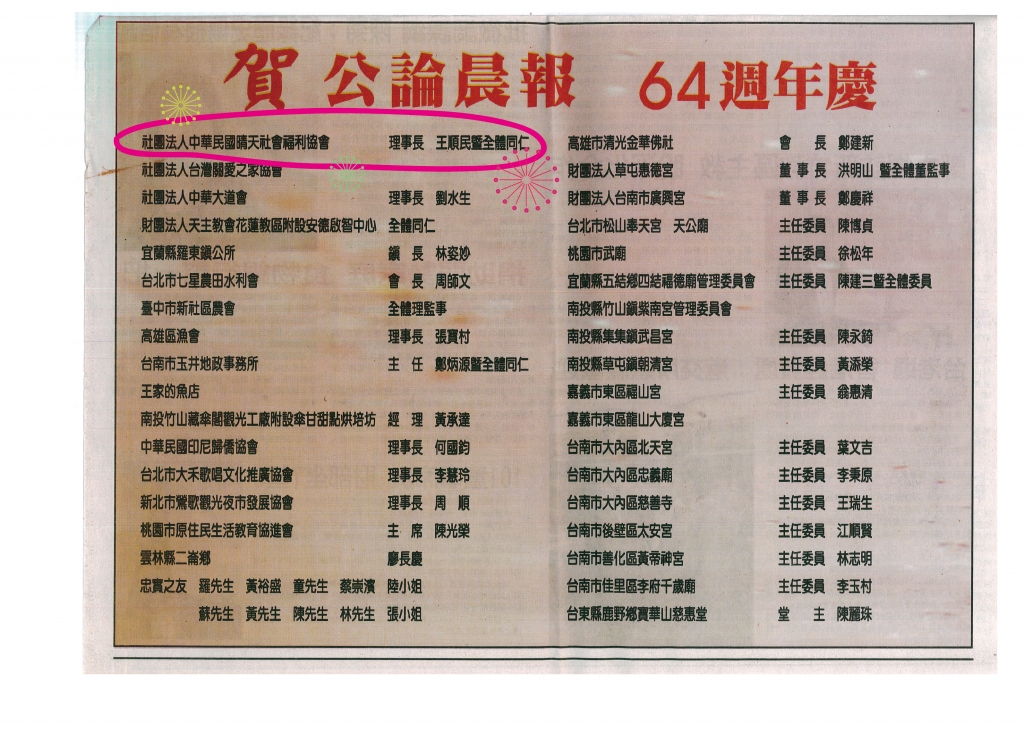 賀 公論晨報 64週年慶
社團法人中華民國晴天社會福利協會 理事長 王順民暨全體同仁
社團法人台灣關愛之家協會
社團法人中華大道會 理事長 劉水生
財團法人天主教會花蓮教區附設安德啟智中心 全體同仁
宜蘭縣羅東鎮公所 鎮長 林姿妙
台北市七星農田水利會 會長 周師文
臺中市新社區農會 全體理監事
高雄區漁會 理事長 張寶村
台南市玉井地政事務所 主任 鄭炳源暨全體同仁
王家的魚店
南投竹山藏傘閣觀光工廠附設傘甘甜點烘培坊 經理 黃承達
中華民國印尼歸僑協會 理事長 何國鈞
台北市大禾歌唱文化推廣協會 理事長 李慧玲
新北市鶯歌觀光夜市發展協會 理事長 周順
桃園市原住民生活教育協進會 主席 陳光榮
雲林縣二崙鄉 廖長慶
忠實之友 羅先生 黃裕盛 童先生 蔡崇濱 陸小姐
蘇先生 黃先生 陳先生 林先生 張小姐
高雄市清光金華佛社 會長 鄭建新
財團法人草屯惠德宮 董事長 洪明山 暨全體董監事
財團法人台南市廣興宮 董事長 鄭慶祥
台北市松山奉天宮 天公廟 主任委員 陳博貞
桃園市武廟 主任委員 徐松年
宜蘭縣五結鄉四結福德廟管理委員會 主任委員 陳建三暨全體委員
南投縣竹山鎮紫南宮管理委員會
南投縣集集鎮武昌宮 主任委員 陳永錡
南投縣草屯鎮朝清宮 主任委員 黃添榮
嘉義市東區福山宮 主任委員 翁惠清
嘉義市東區龍山大廈宮
台南市大內區北天宮 主任委員 葉文吉
台南市大內區忠義廟 主任委員 李秉原
台南市大內區慈善寺 主任委員 王瑞生
台南市後壁區太安宮 主任委員 江順賢
台南市善化區黃帝神宮 主任委員 林志明
台南市佳里區李府千歲廟 主任委員 李玉村
台東縣鹿野鄉寶華山慈惠堂 堂主 陳麗珠